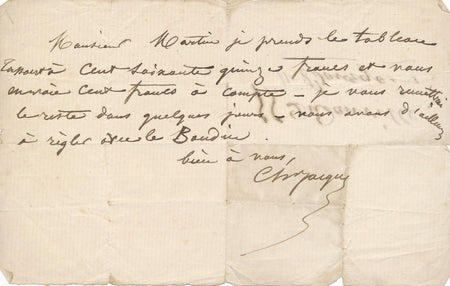 Monsieur Martin je prends le tableau
à cent soixante quinze francs et vous
envoie cent francs à compte – je vous remettrai
le reste dans quelques jours – nous avons d'ailleurs
à règler avec le Boudin.
bien à vous,
Ch Jacque